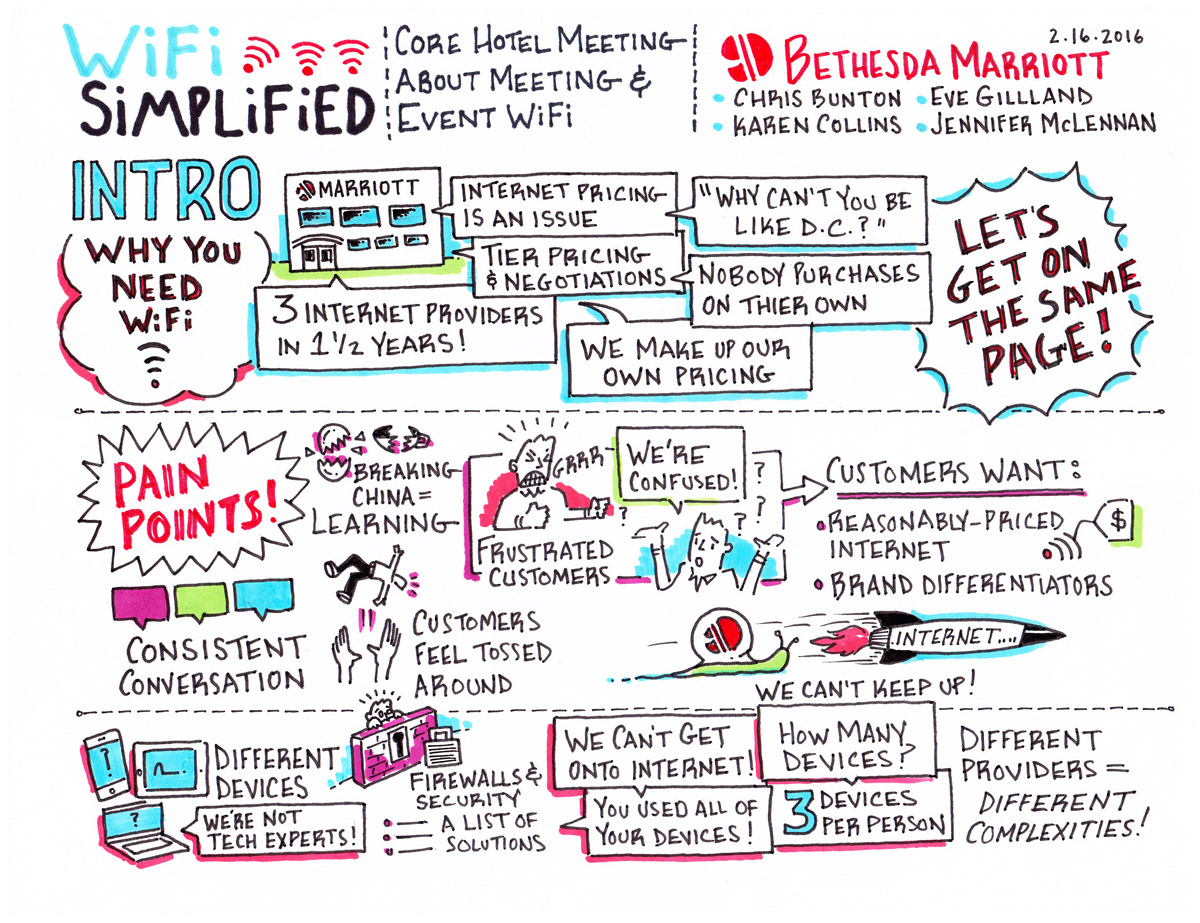 WiFi
SiMPLiFiED
CORE HOTEL MEETING
ABOUT MEETING &
EVENT WiFi
2.16.2016
BETHESDA MARRIOTT
• CHRIS BUNTON • EVE GILLLAND
• KAREN COLLINS • JENNIFER McLENNAN
INTRO
WHY YOU
NEED
WiFi
MARRIOTT
INTERNET PRICING
IS AN ISSUE
"WHY CAN'T YOU BE
LIKE D.C.?"
TIER PRICING
& NEGOTIATIONS
NOBODY PURCHASES
ON THIER OWN
3 INTERNET PROVIDERS
IN 1 1/2 YEARS!
WE MAKE UP OUR
OWN PRICING
LET'S
GET ON
THE SAME
PAGE!
PAIN
POINTS!
BREAKING
CHINA =
LEARNING
GRRR
FRUSTRATED
CUSTOMERS
WE'RE
CONFUSED!
?
?
?
?
?
CUSTOMERS WANT:
• REASONABLY-PRICED
INTERNET
$
• BRAND DIFFERENTIATORS
CONSISTENT
CONVERSATION
CUSTOMERS
FEEL TOSSED
AROUND
INTERNET....
WE CAN'T KEEP UP!
?
DIFFERENT
DEVICES
?
WE'RE NOT
TECH EXPERTS!
FIREWALLS &
SECURITY
• A LIST OF
• SOLUTIONS
WE CAN'T GET
ONTO INTERNET!
YOU USED ALL OF
YOUR DEVICES!
HOW MANY
DEVICES?
3 DEVICES
PER PERSON
DIFFERENT
PROVIDERS =
DIFFERENT
COMPLEXITIES!